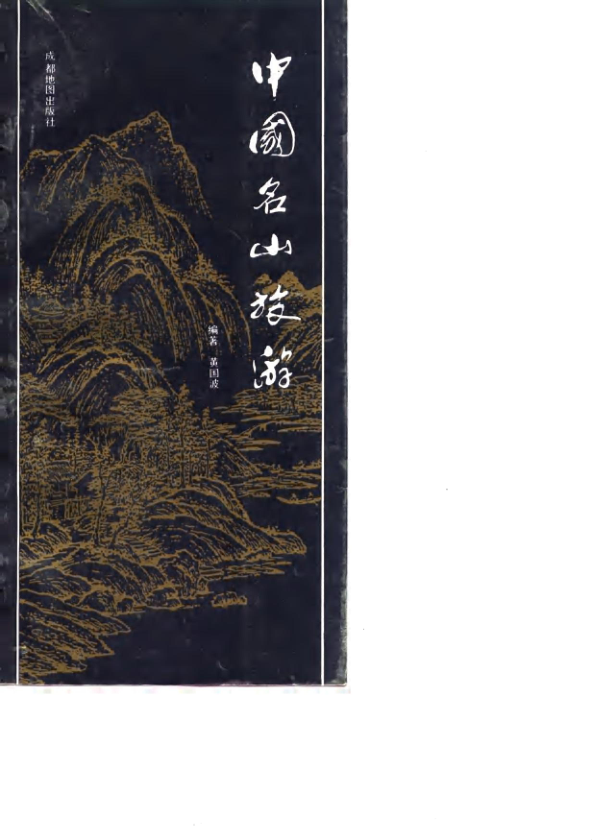 中國名山旅游
编著 黄国波
成都地图出版社